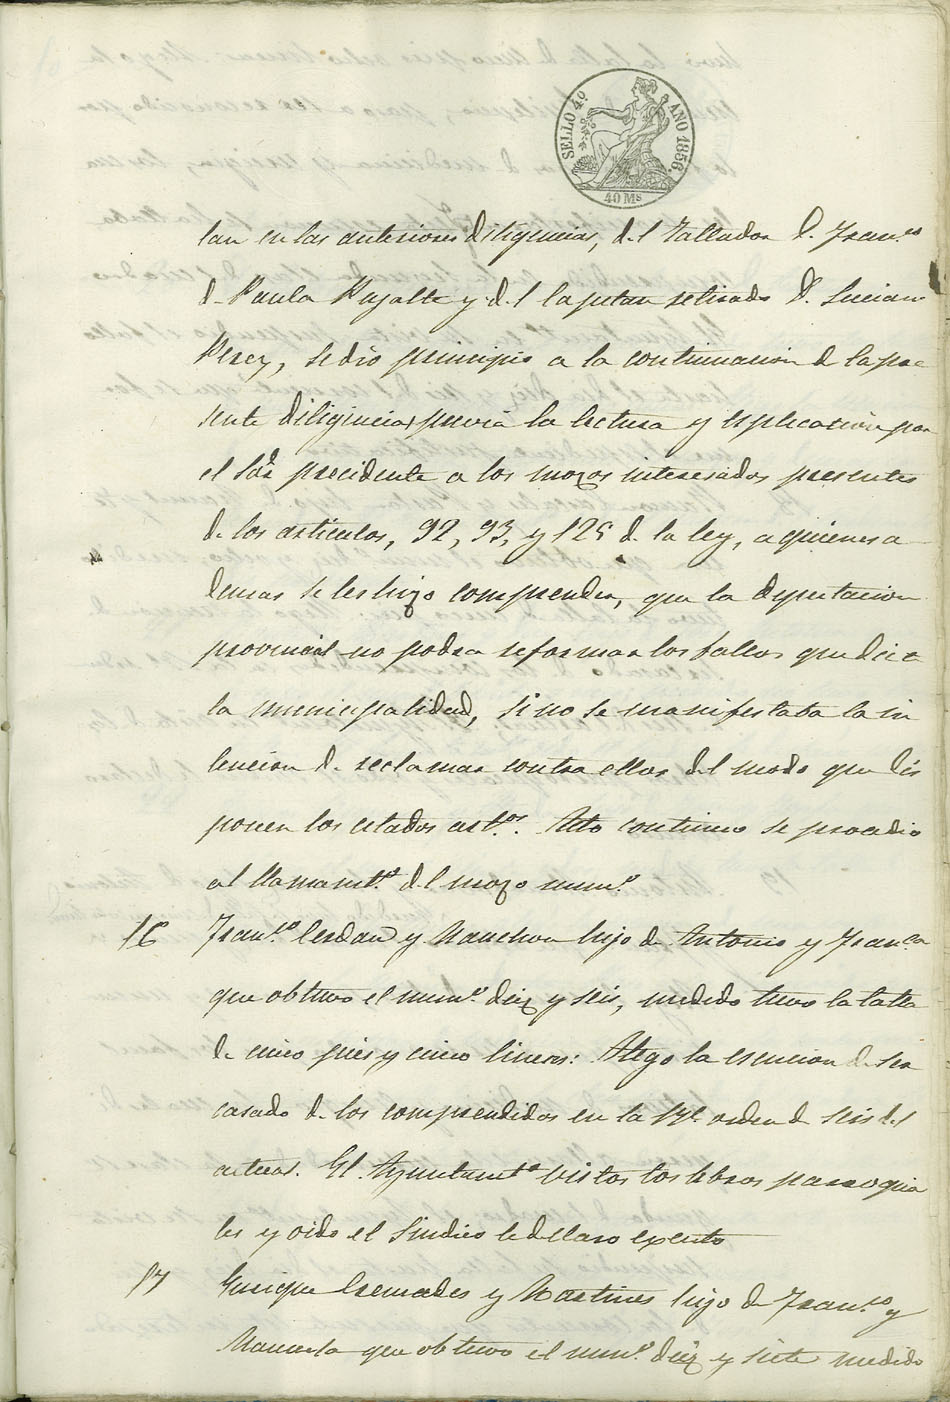 SELLO 4º AÑO 1856.
40 Ms
tan en las anteriores diligencias, del Tallador D. Franco
de Paula Pujalte y del Capitan retirado D. Lucian
Perez, se dio principio a la continuacion de la pre
sente diligencias previa la lectura y esplicacion por
el Sor precidente a los mozos interesados presentes
de los articulos, 92, 93, y 125 de la ley, a quienes a
demas se les hizo comprender, que la diputacion
provincial no podra reformar los fallos que dicte
la municipalidad, si no se manifestaba la in
tencion de reclamar contra ellos del modo que dis
ponen los citados artos. Acto continuo se procedio
al llamamto del mozo numo
16 Franco Cerdan y Manchon hijo de Antonio y Franca
que obtuvo el numo diez y seis, medido tuvo la talla
de cinco pies y cinco lineas: Alego la esencion de ser
casado de los comprendidos en la Rl. orden de seis del
actual. El Ayuntamto vistos los libros parroquia
les y oido el Sindico le declaro exento
17 Enrique Cremades y Martines hijo de Franco y
Manuela que obtuvo el numo diez y siete medido